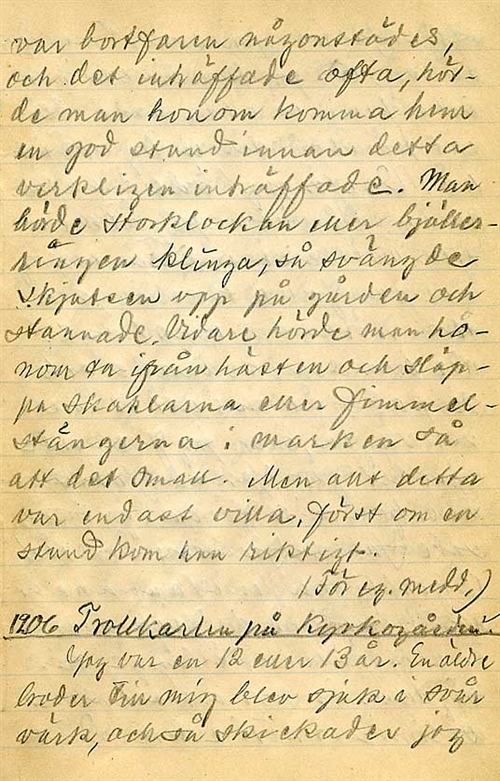 var bortfaren någonstädes,
och det inträffade ofta, hör-
de man honom komma hem
en god stund innan detta
verkligen inträffade. Man
hörde storklockan eller bjäller-
ringen klinga, så svängde
skjutsen upp på gården och
stannade. Vidare hörde man ho-
nom ta ifrån hästen och släp-
pa skaklarna eller fimmel-
stängerna i marken så
att det small. Men allt detta
var endast villa, först om en
stund kom han riktigt.
(För eg. medd.)
1206 Trollkarlen på Kyrkogården.
Jag var en 12 eller 13 år. En äldre
broder till mig blev sjuk i svår
värk, och så skickades jag